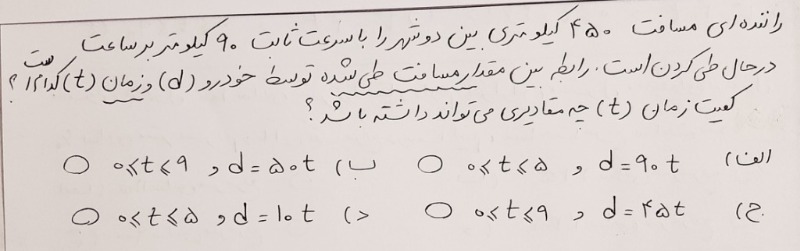 راننده‌ای مسافت ۴۵۰ کیلومتری بین دو شهر را با سرعت ثابت ۹۰ کیلومتر بر ساعت
در حال طی کردن است. رابطه بین مقدار مسافت طی شده توسط خودرو (d) و زمان (t) کدام است؟
کمیت زمان (t) چه مقادیری می‌تواند داشته باشد؟
الف) d=۹۰t و ۰⩽t⩽۵ ب) d=۵۰t و ۰⩽t⩽۹
ج) d=۴۵t و ۰⩽t⩽۹ د) d=۱۰t و ۰⩽t⩽۵